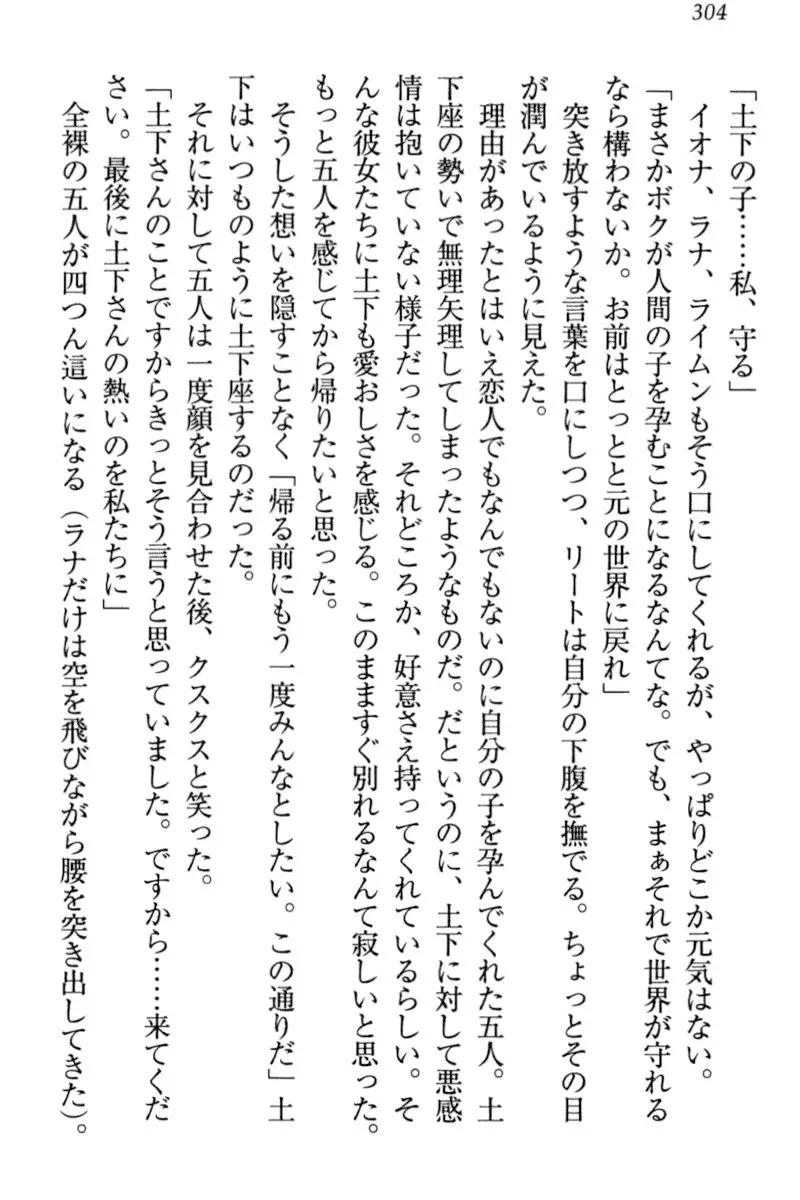 304
「土下の子……私、守る」
イオナ、ラナ、ライムンもそう口にしてくれるが、やっぱりどこか元気はない。
「まさかボクが人間の子を孕むことになるなんてな。でも、まぁそれで世界が守れる
なら構わないか。お前はとっとと元の世界に戻れ」
突き放すような言葉を口にしつつ、リートは自分の下腹を撫でる。ちょっとその目
が潤んでいるように見えた。
理由があったとはいえ恋人でもなんでもないのに自分の子を孕んでくれた五人。土
下座の勢いで無理矢理してしまったようなものだ。だというのに、土下に対して悪感
情は抱いていない様子だった。それどころか、好意さえ持ってくれているらしい。そ
んな彼女たちに土下も愛おしさを感じる。このまますぐ別れるなんて寂しいと思った。
もっと五人を感じてから帰りたいと思った。
そうした想いを隠すことなく「帰る前にもう一度みんなとしたい。この通りだ」土
下はいつものように土下座するのだった。
それに対して五人は一度顔を見合わせた後、クスクスと笑った。
「土下さんのことですからきっとそう言うと思っていました。ですから……来てくだ
さい。最後に土下さんの熱いのを私たちに」
全裸の五人が四つん這いになる（ラナだけは空を飛びながら腰を突き出してきた）。